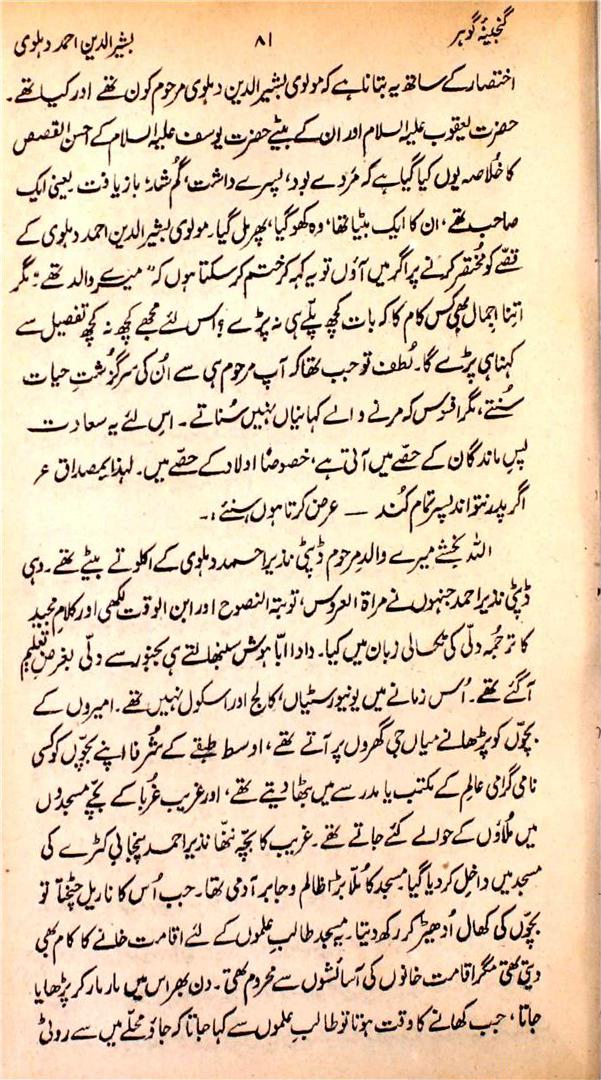 گنجینۂ گوہر ۸۱ بشیر الدین احمد دہلوی
اختصار کے ساتھ یہ بتانا ہے کہ مولوی بشیر الدین دہلوی مرحوم کون تھے اور کیا تھے۔
حضرت یعقوب علیہ السلام اور ان کے بیٹے حضرت یوسف علیہ السلام کے احسن القصص
کا خلاصہ یوں کیا گیا ہے کہ مردے بود، پسرے داشت، گم شد، باز یافت یعنی ایک
صاحب تھے، ان کا ایک بیٹا تھا، وہ کھو گیا، پھر مل گیا۔ مولوی بشیر الدین احمد دہلوی کے
قصّے کو مختصر کرنے پر اگر میں آؤں تو یہ کہہ کر ختم کر سکتا ہوں کہ "میرے والد تھے"، مگر
اتنا اجمال بھی کس کام کا کہ بات کچھ پلّے ہی نہ پڑے؟ اس لئے مجھے کچھ نہ کچھ تفصیل سے
کہنا ہی پڑے گا۔ لُطف تو جب تھا کہ آپ مرحوم ہی سے اُن کی سرگزشتِ حیات
سُنتے، مگر افسوس کہ مرنے والے کہانیاں نہیں سُناتے۔ اس لئے یہ سعادت
پس ماندگان کے حصّے میں آتی ہے، خصوصاً اولاد کے حصّے میں۔ لہٰذا بمصداق ع
اگر پدر نتواند پسر تمام کُند — عرض کرتا ہوں سنئے:۔
اللہ بخشے میرے والدِ مرحوم ڈپٹی نذیر احمد دہلوی کے اکلوتے بیٹے تھے۔ وہی
ڈپٹی نذیر احمد جنہوں نے مراۃ العروس، توبتہ النصوح اور ابن الوقت لکھی اور کلامِ مجید
کا ترجمہ دلّی کی ٹکسالی زبان میں کیا۔ دادا ابّا ہوش سنبھالتے ہی بجنور سے دلّی بغرضِ تعلیم
آ گئے تھے۔ اُس زمانے میں یونیورسٹیاں، کالج اور اسکول نہیں تھے۔ امیروں کے
بچّوں کو پڑھانے میاں جی گھروں پر آتے تھے، اوسط طبقے کے شُرفا اپنے بچّوں کو کسی
نامی گرامی عالم کے مکتب یا مدرسے میں بٹھا دیتے تھے، اور غریب غُربا کے بچّے مسجدوں
میں مُلّاؤں کے حوالے کئے جاتے تھے۔ غریب کا بچّہ ننھّا نذیر احمد پنجابی کٹرے کی
مسجد میں داخل کر دیا گیا۔ مسجد کا مُلّا بڑا ظالم و جابر آدمی تھا۔ جب اُس کا ناریل چٹختا تو
بچّوں کی کھال اُدھیڑ کر رکھ دیتا۔ مسجد طالب علموں کے لئے اقامت خانے کا کام بھی
دیتی تھی مگر اقامت خانوں کی آسائشوں سے محروم تھی۔ دن بھر اس میں مار مار کر پڑھایا
جاتا، جب کھانے کا وقت ہوتا تو طالب علموں سے کہا جاتا کہ جاؤ محلّے میں سے روٹی